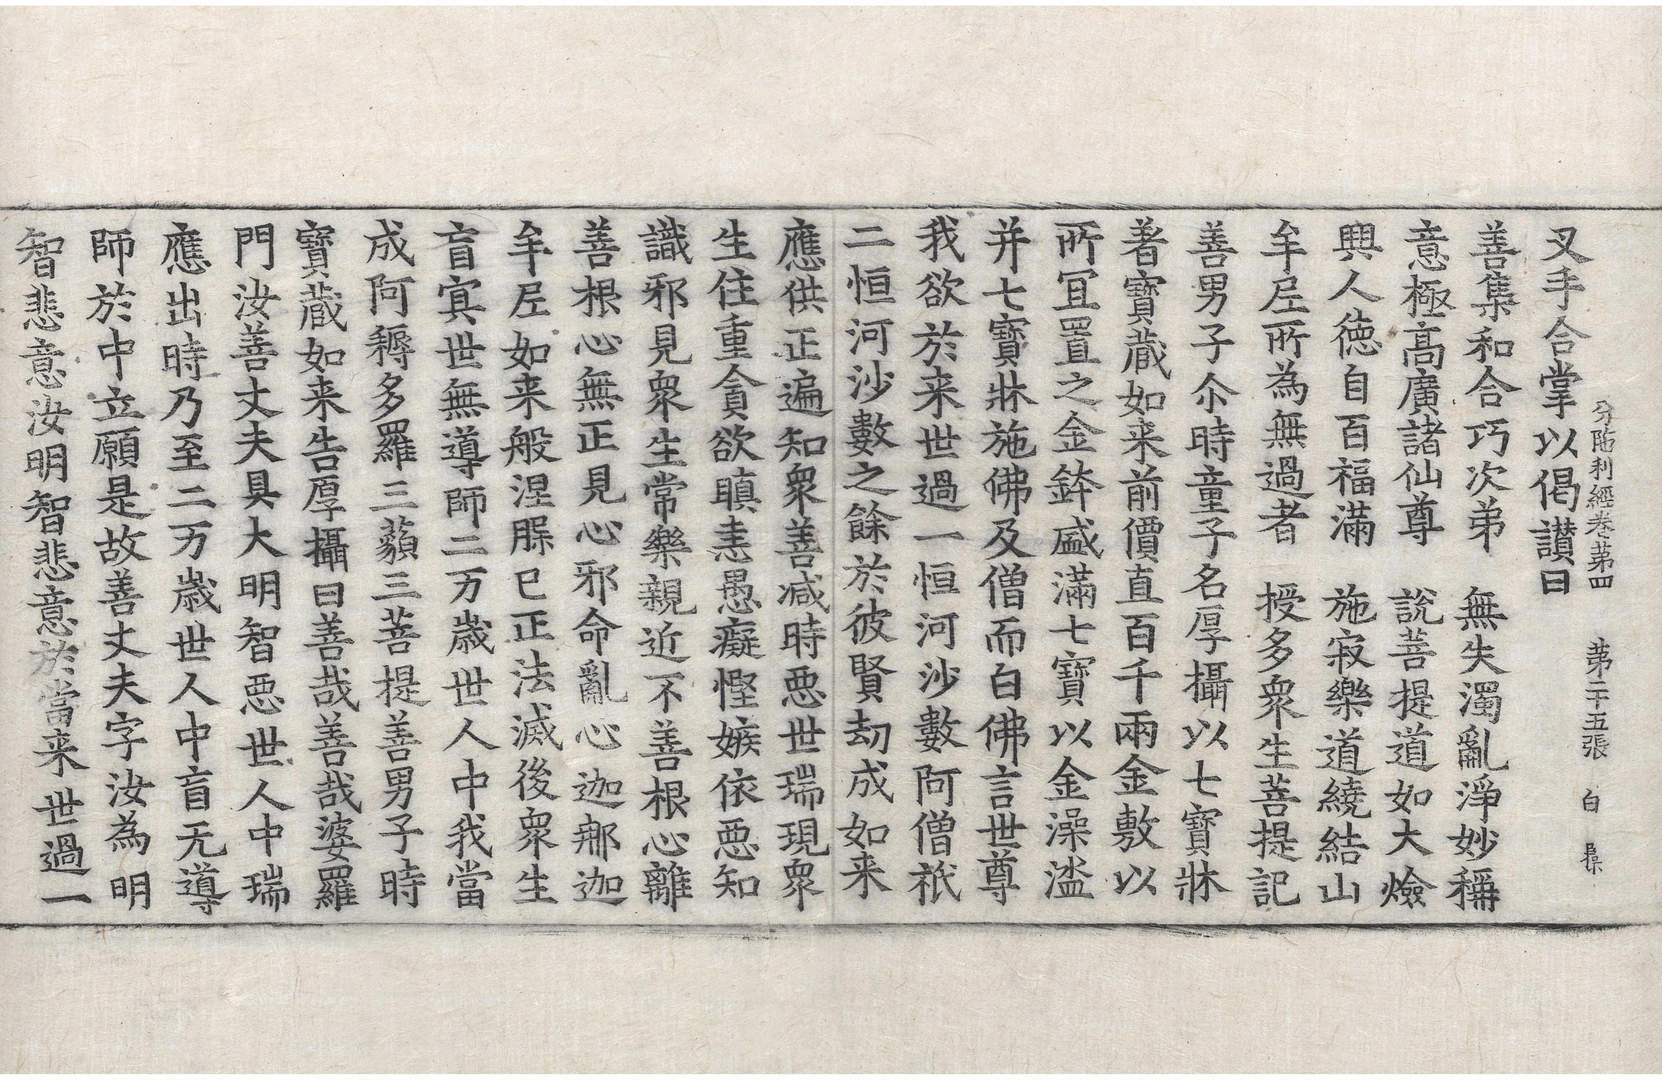 分陁利經卷第四　第二十五張　白
叉手合掌以偈讃曰
善集和合巧次苐　無失濁亂淨妙稱
意極高廣諸仙尊　說菩提道如大燄
興人徳自百福滿　施寂樂道繞結山
牟尼所為無過者　授多衆生菩提記
善男子尒時童子名厚攝以七寶牀
著寶蔵如来前價直百千兩金敷以
所冝置之金鉢盛滿七寶以金澡盓
并七寶牀施佛及僧而白佛言世尊
我欲於来世過一恒河沙數阿僧祇
二恒河沙數之餘於彼賢劫成如来
應供正遍知衆善减時惡世瑞現衆
生住重貪欲瞋恚愚癡慳嫉依惡知
識邪見衆生常樂親近不善根心離
善根心無正見心邪命亂心迦那迦
牟尼如来般涅槃已正法滅後衆生
盲冥世無導師二万歲世人中我當
成阿耨多羅三藐三菩提善男子時
寶蔵如来告厚攝曰善哉善哉婆羅
門汝善丈夫具大明智惡世人中瑞
應出時乃至二万歲世人中盲无導
師於中立願是故善丈夫字汝為明
智悲意汝明智悲意於當来世過一